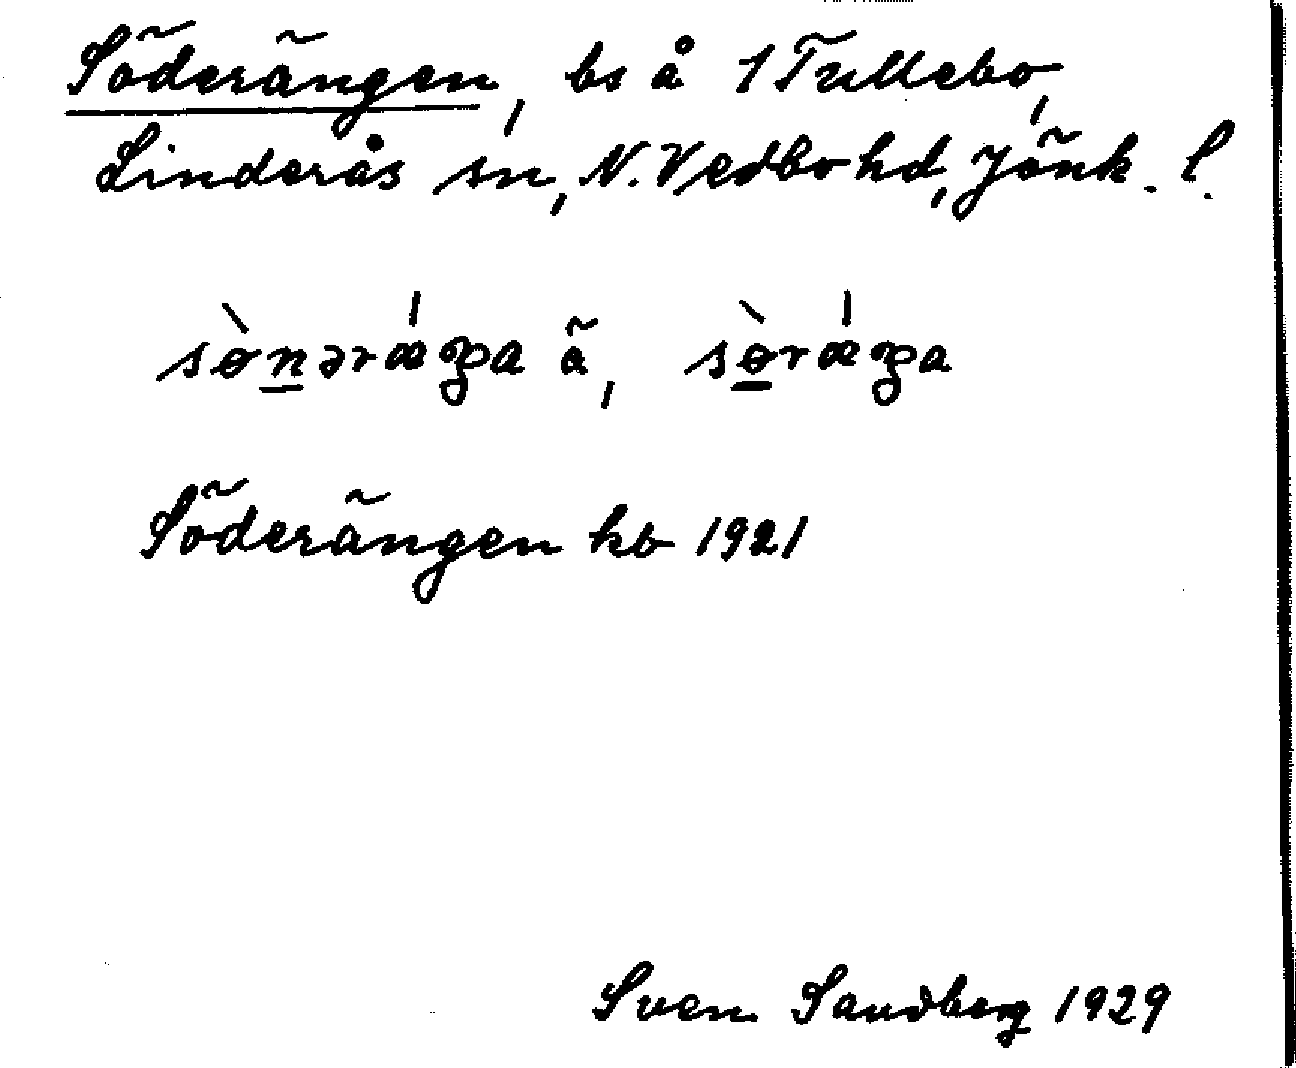 Söderängen, bs å 1 Tullebo,
Linderås sn, N. Vedbo hd, Jönk. l.
sø̀nərǽŋa ã, sø̀rǽŋa
Söderängen kb 1921
Sven Sandberg 1929